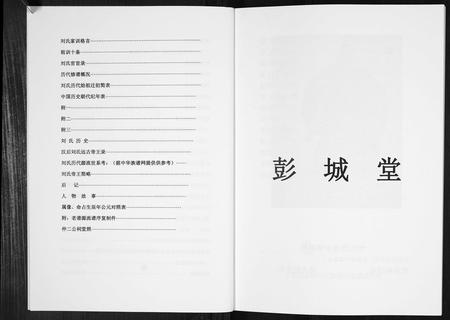 刘氏家训格言
祖训十条
刘氏官宦录
历代修谱概况
刘氏历代始祖迁绍简表
中国历史朝代纪年表
附一
附二
附三
刘氏历史
汉后刘氏远古帝王录
刘氏历代源流世系考：（据中华族谱网提供供参考）
刘氏帝王简略
后记
人物故事
属像、命占生辰年公元对照表
附：老谱源流谱序复制件
仲二公祠堂照
彭城堂